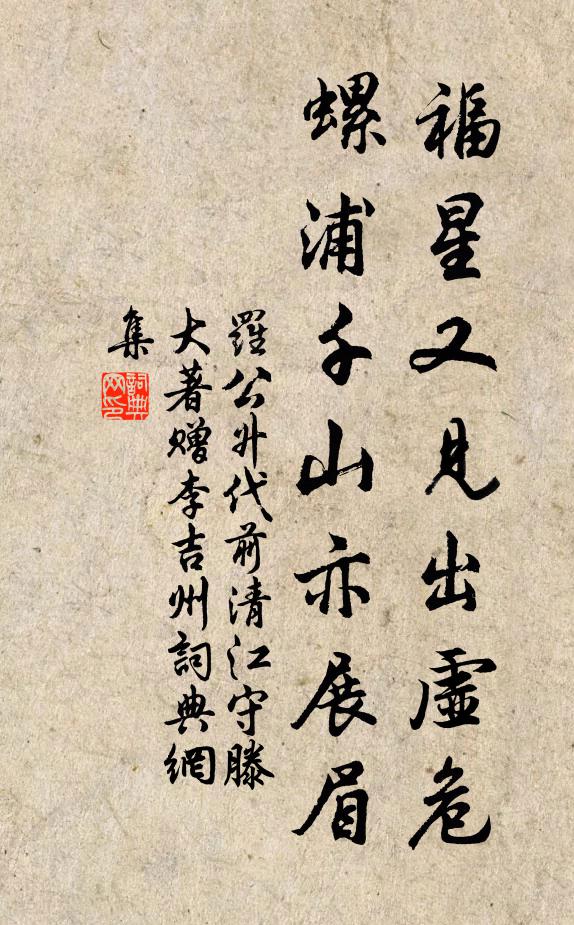 福星又見出虛危
螺浦千山亦展眉
羅公升代前清江守滕
大著贈李吉州詞典網
集
詞典
网印